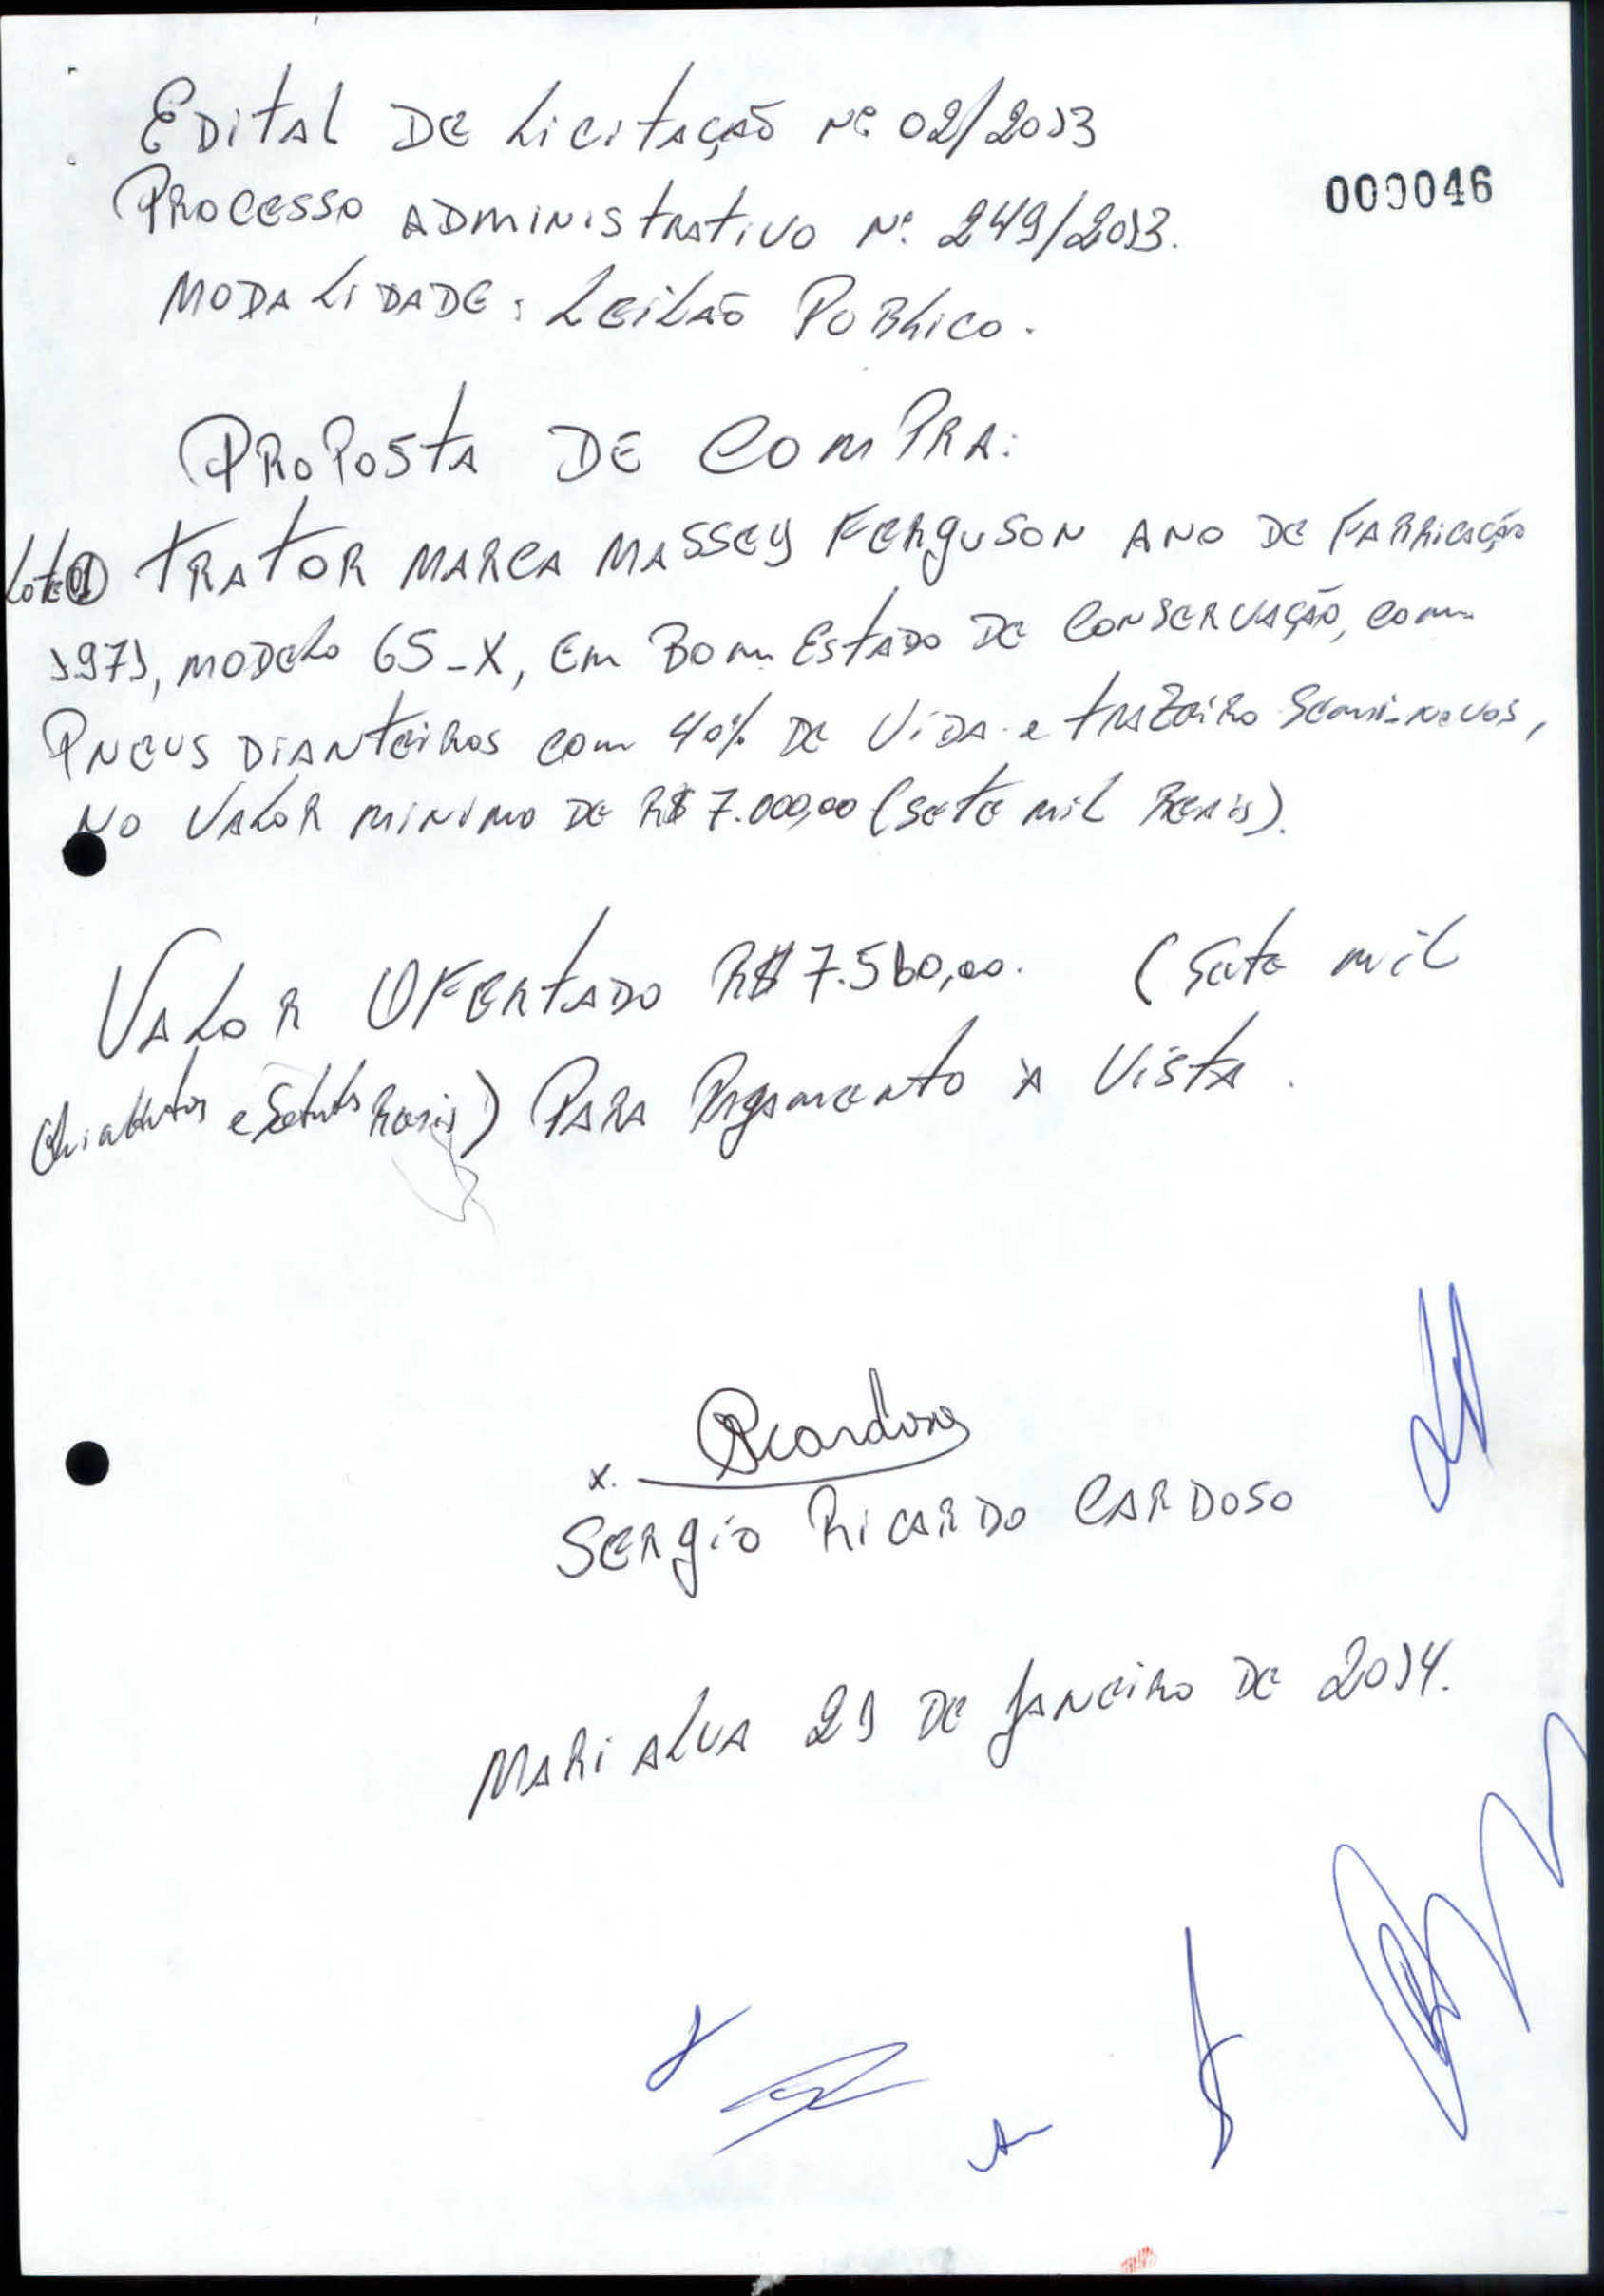 Edital de Licitação Nº 02/2013
000046
Processo Administrativo Nº 249/2013.
Modalidade: Leilão Publico.
Proposta de Compra:
Lote 01 Trator marca Massey Ferguson ano de fabricação
1971, modelo 65-X, em bom estado de conservação, com
pneus dianteiros com 40% de vida e trazeiro semi-novos,
no valor minimo de R$ 7.000,00 (sete mil reais).
Valor Ofertado R$ 7.560,00. (sete mil
e reais) para pagamento à vista.
x.
Sergio Ricardo Cardoso
Marialva 29 de Janeiro de 2014.